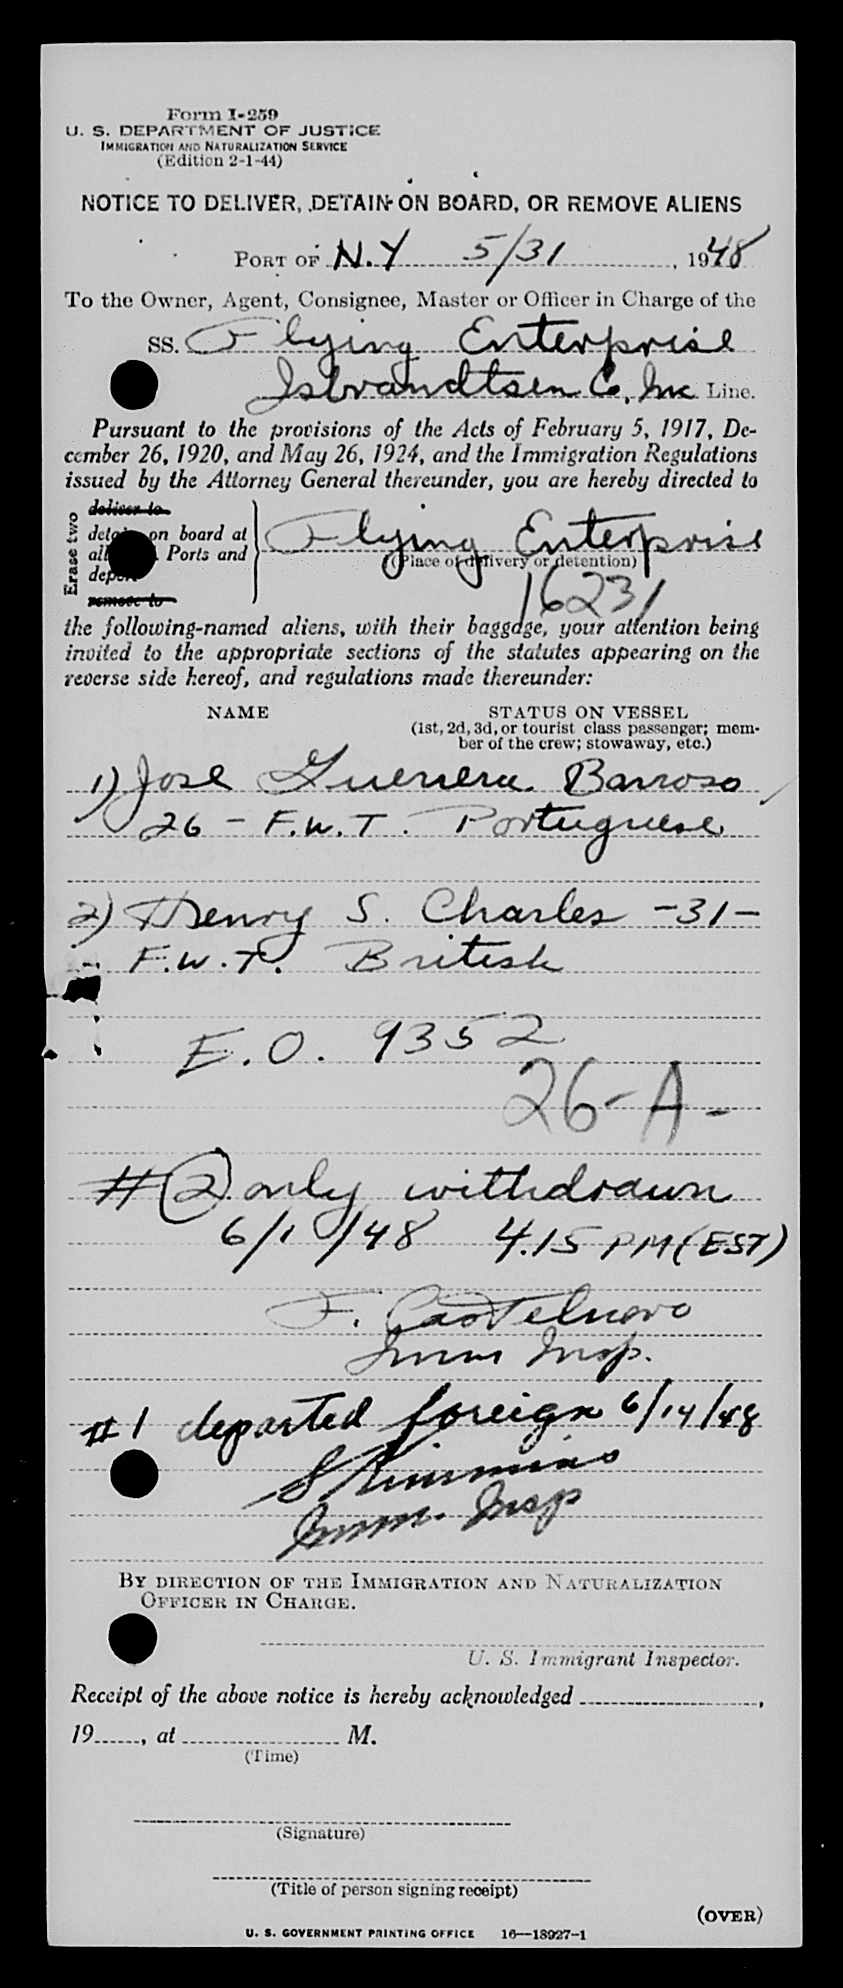 Form I-259
U. S. DEPARTMENT OF JUSTICE
IMMIGRATION AND NATURALIZATION SERVICE
(Edition 2-1-44)
NOTICE TO DELIVER, DETAIN ON BOARD, OR REMOVE ALIENS
PORT OF N.Y 5/31, 1948
To the Owner, Agent, Consignee, Master or Officer in Charge of the
SS. Flying Enterprise
Isbrandtsen Co, Inc Line.
Pursuant to the provisions of the Acts of February 5, 1917, De-
cember 26, 1920, and May 26, 1924, and the Immigration Regulations
issued by the Attorney General thereunder, you are hereby directed to
Erase two
deliver to
detain on board at
all Ports and
deport
remove to
Flying Enterprise
(Place of delivery or detention)
16231
the following-named aliens, with their baggage, your attention being
invited to the appropriate sections of the statutes appearing on the
reverse side hereof, and regulations made thereunder:
NAME STATUS ON VESSEL
(1st, 2d, 3d, or tourist class passenger; mem-
ber of the crew; stowaway, etc.)
1) Jose Guerrera Barroso
26 - F.W.T. Portuguese
2) Henry S. Charles -31-
F.W.T. British
E.O. 9352
26-A-
#2 only withdrawn
6/1/48 4.15 PM (EST)
F. Castelnovo
Imm Insp.
#1 departed foreign 6/14/48
Imm. Insp
BY DIRECTION OF THE IMMIGRATION AND NATURALIZATION
OFFICER IN CHARGE.
U. S. Immigrant Inspector.
Receipt of the above notice is hereby acknowledged ,
19 , at M.
(Time)
(Signature)
(Title of person signing receipt)
(OVER)
U. S. GOVERNMENT PRINTING OFFICE 16—18927-1